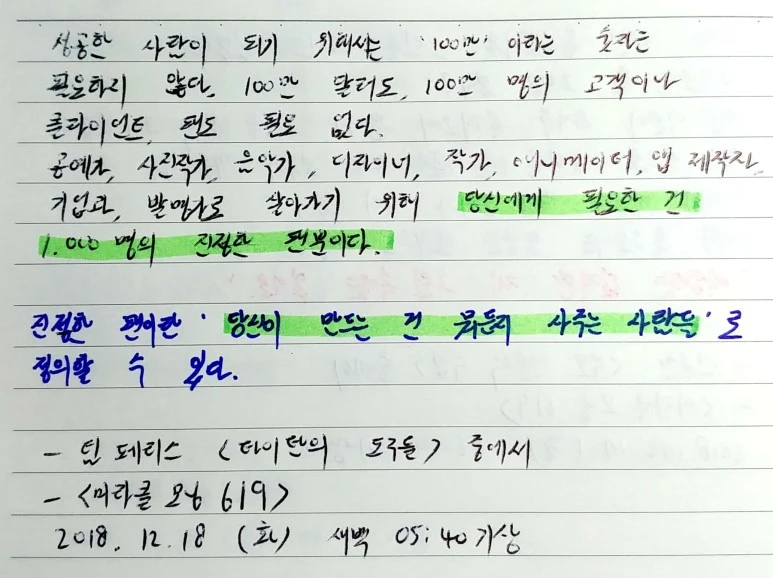 성공한 사람이 되기 위해서는 '100만' 이라는 숫자는
필요하지 않다. 100만 달러도, 100만 명의 고객이나
클라이언트, 팬도 필요 없다.
공예가, 사진작가, 음악가, 디자이너, 작가, 애니메이터, 앱 제작자,
기업가, 발명가로 살아가기 위해 당신에게 필요한 건
1,000명의 진정한 팬뿐이다.
진정한 팬이란 '당신이 만드는 건 뭐든지 사주는 사람들'로
정의할 수 있다.
- 팀 페리스 <타이탄의 도구들> 중에서
- <미라클 모닝 619>
2018. 12. 18 (화) 새벽 05:40 기상